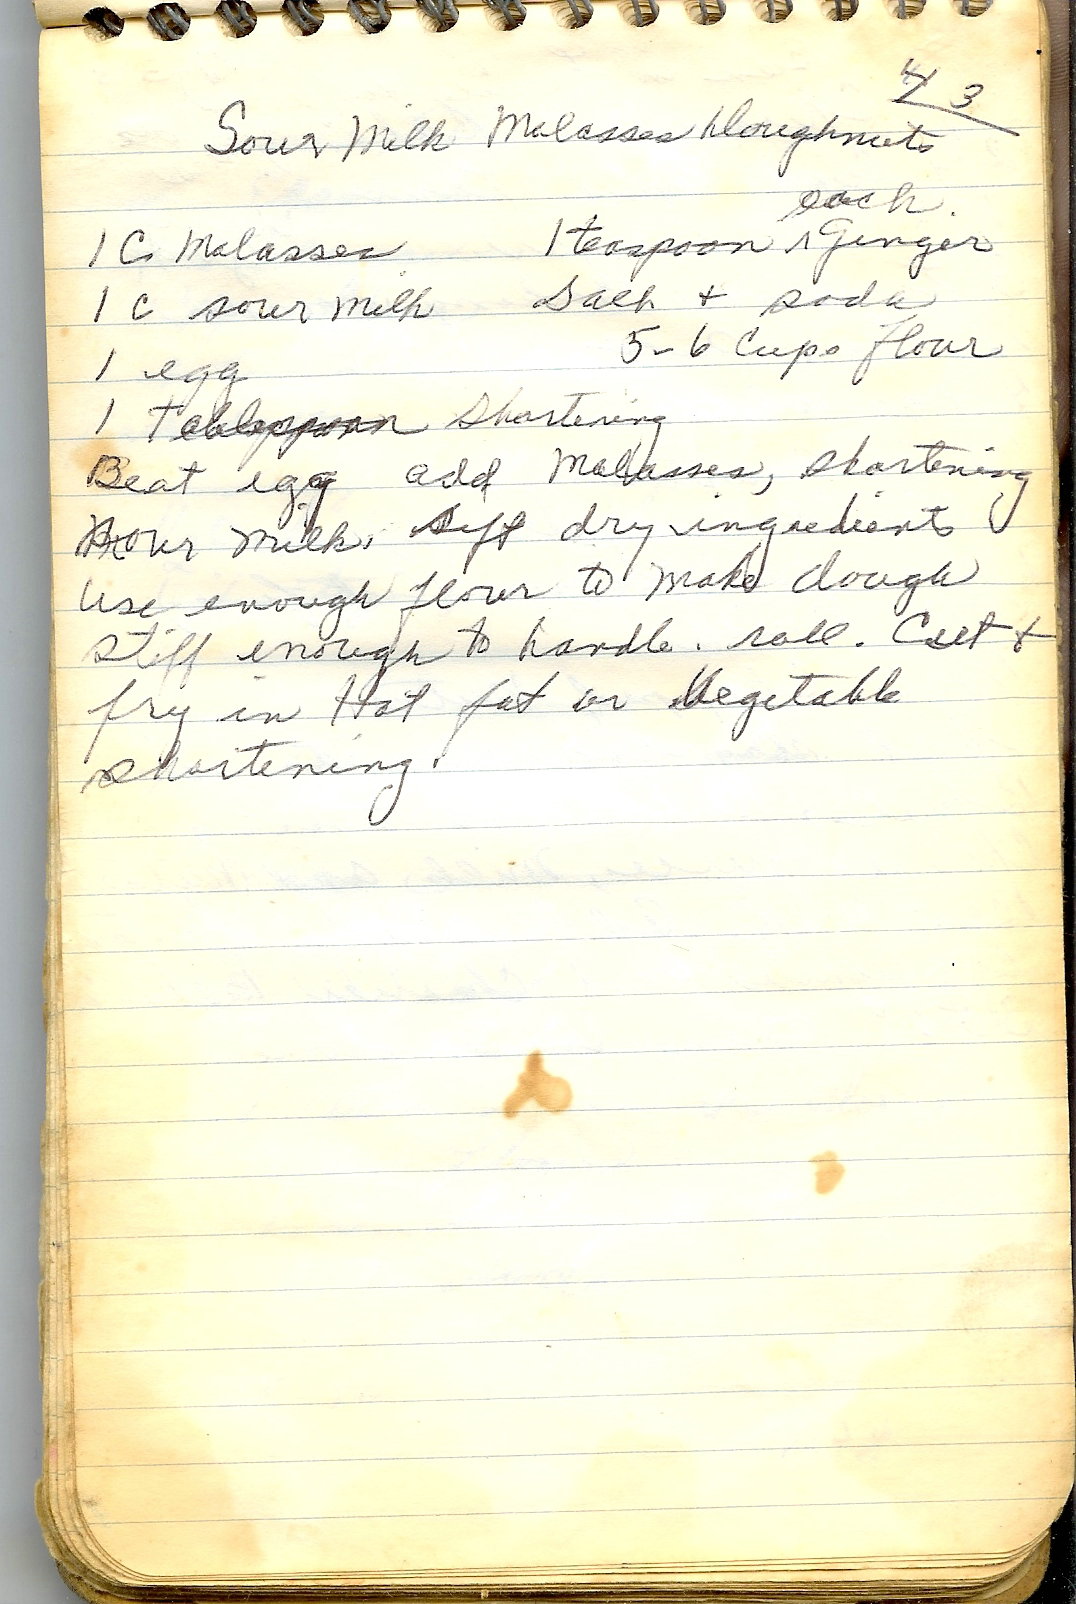 43
Sour Milk Molasses Doughnuts
each.
1 C. Molasses 1 teaspoon ^ Ginger
1 C sour milk Salt + soda
1 egg 5-6 Cups flour
1 Tablespoon shortening
Beat egg add Molasses, shortening
sour milk. Syft dry ingredients
Use enough flour to make dough
stiff enough to handle. roll. Cut +
fry in Hot fat or Vegetable
shortening.